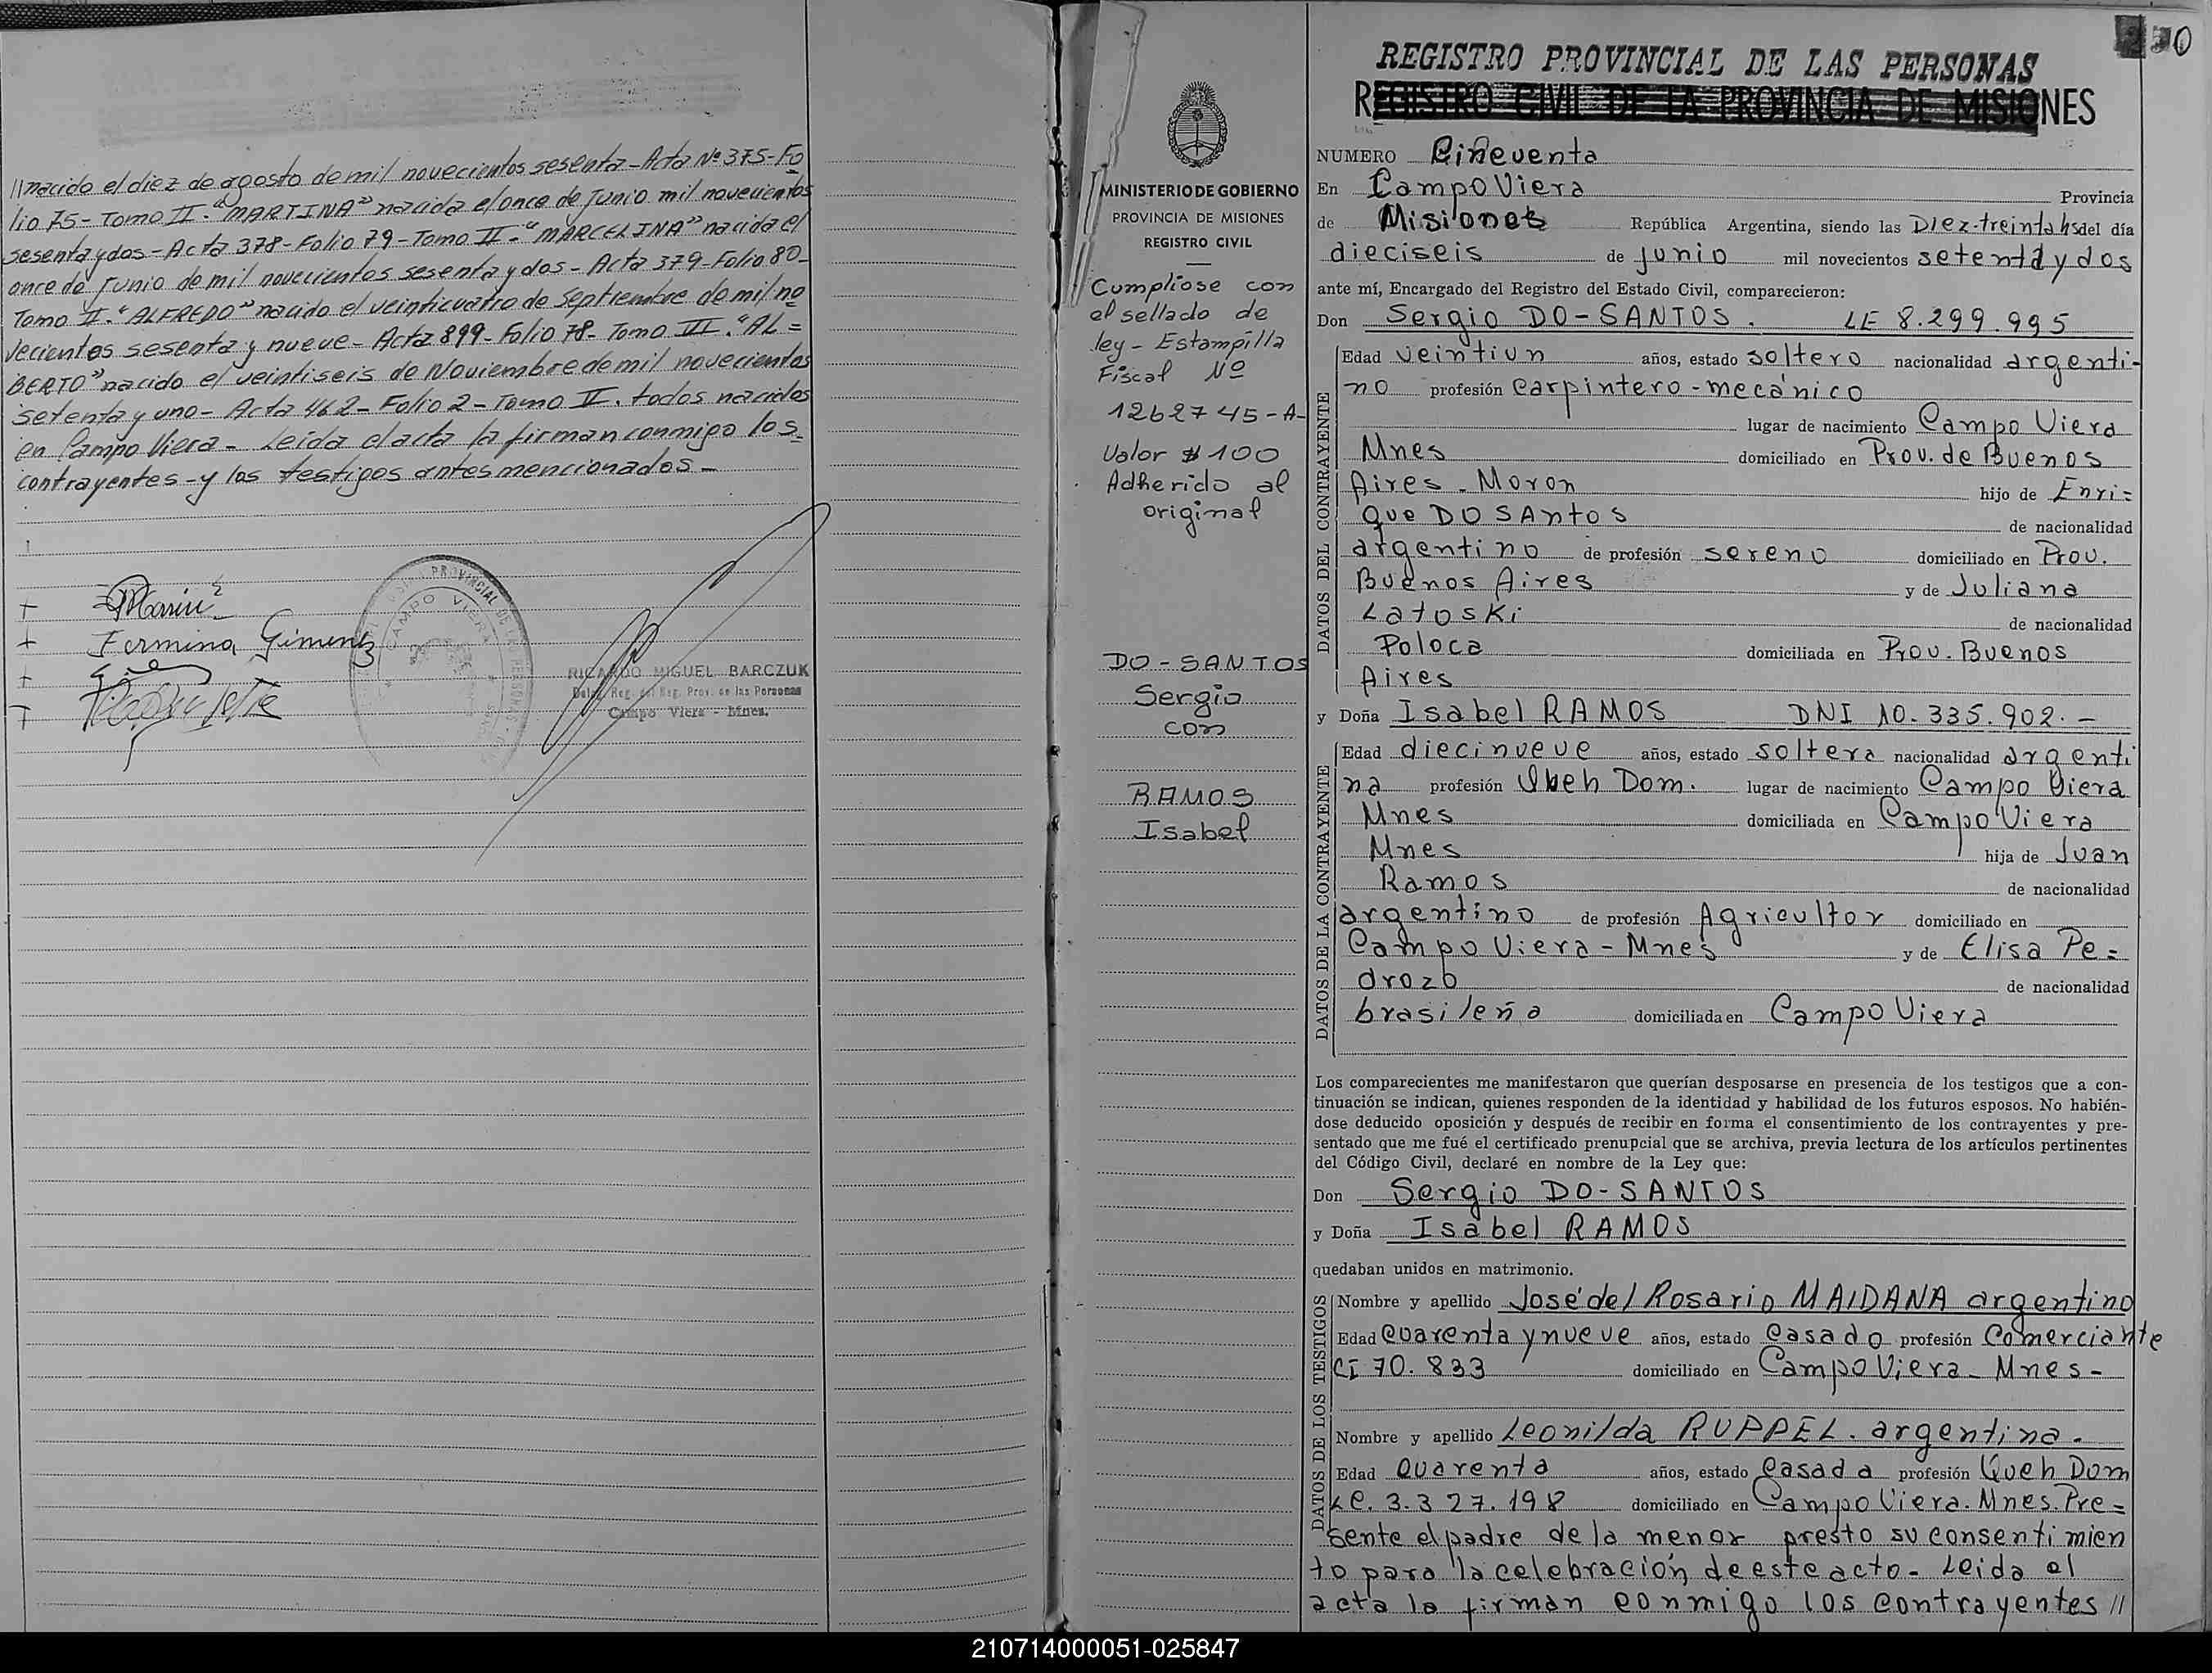 //nacido el diez de agosto de mil novecientos sesenta-Acta Nº375-Fo
lio 75-Tomo II-"MARTINA" nacida el once de Junio mil novecientos
sesentaydos-Acta 378-Folio 79-Tomo II-"MARCELINA" nacida el
once de Junio de mil novecientos sesenta y dos-Acta 379-Folio 80-
Tomo II-"ALFREDO" nacido el veinticuatro de Septiembre de mil no
vecientos sesenta y nueve-Acta 899-Folio 78-Tomo III."AL=
BERTO" nacido el veintiseis de Noviembre de mil novecientos
setenta y uno-Acta 462-Folio 2-Tomo II. todos nacidos
en Campo Viera-Leida el acta la firman conmigo los
contrayentes-y los testigos antes mencionados-
Fermina Gimenez
PROVINCIAL DE LAS PERSONAS
CAMPO VIERA
RICARDO MIGUEL BARCZUK
Deleg. Reg. del Reg. Prov. de las Personas
Campo Viera - Mnes.
50
REGISTRO PROVINCIAL DE LAS PERSONAS
REGISTRO CIVIL DE LA PROVINCIA DE MISIONES
MINISTERIO DE GOBIERNO
PROVINCIA DE MISIONES
REGISTRO CIVIL
Cumpliose con
el sellado de
ley-Estampilla
Fiscal Nº
1262745-A-
Valor $100
Adherido al
original
DO-SANTOS
Sergio
con
RAMOS
Isabel
NUMERO Cincuenta
En Campo Viera Provincia
de Misiones República Argentina, siendo las Diez-treinta hs del día
dieciseis de junio mil novecientos setenta y dos
ante mí, Encargado del Registro del Estado Civil, comparecieron:
Don Sergio DO-SANTOS. LE 8.299.995
DATOS DEL CONTRAYENTE
Edad veintiun años, estado soltero nacionalidad argenti-
no profesión carpintero-mecánico
lugar de nacimiento Campo Viera
Mnes domiciliado en Prov. de Buenos
Aires-Moron hijo de Enri=
que DO SAntos de nacionalidad
argentino de profesión sereno domiciliado en Prov.
Buenos Aires y de Juliana
Latoski de nacionalidad
Poloca domiciliada en Prov. Buenos
Aires
y Doña Isabel RAMOS DNI 10.335.902.-
DATOS DE LA CONTRAYENTE
Edad diecinueve años, estado soltera nacionalidad argenti
na profesión Queh Dom. lugar de nacimiento Campo Viera
Mnes domiciliada en Campo Viera
Mnes hija de Juan
Ramos de nacionalidad
argentino de profesión Agricultor domiciliado en
Campo Viera-Mnes y de Elisa Pe=
drozo de nacionalidad
brasileña domiciliada en Campo Viera
Los comparecientes me manifestaron que querían desposarse en presencia de los testigos que a con-
tinuación se indican, quienes responden de la identidad y habilidad de los futuros esposos. No habién-
dose deducido oposición y después de recibir en forma el consentimiento de los contrayentes y pre-
sentado que me fué el certificado prenupcial que se archiva, previa lectura de los artículos pertinentes
del Código Civil, declaré en nombre de la Ley que:
Don Sergio DO-SANTOS
y Doña Isabel RAMOS
quedaban unidos en matrimonio.
DATOS DE LOS TESTIGOS
Nombre y apellido José del Rosario MAIDANA argentino
Edad cuarenta y nueve años, estado casado profesión Comerciante
CI 70.833 domiciliado en Campo Viera-Mnes-
Nombre y apellido Leonilda RUPPEL. argentina.
Edad cuarenta años, estado casada profesión Queh Dom
LC. 3.327.198 domiciliado en Campo Viera. Mnes. Pre=
sente el padre de la menor presto su consentimien
to para la celebración de este acto-Leida el
acta la firman conmigo los contrayentes//
210714000051-025847